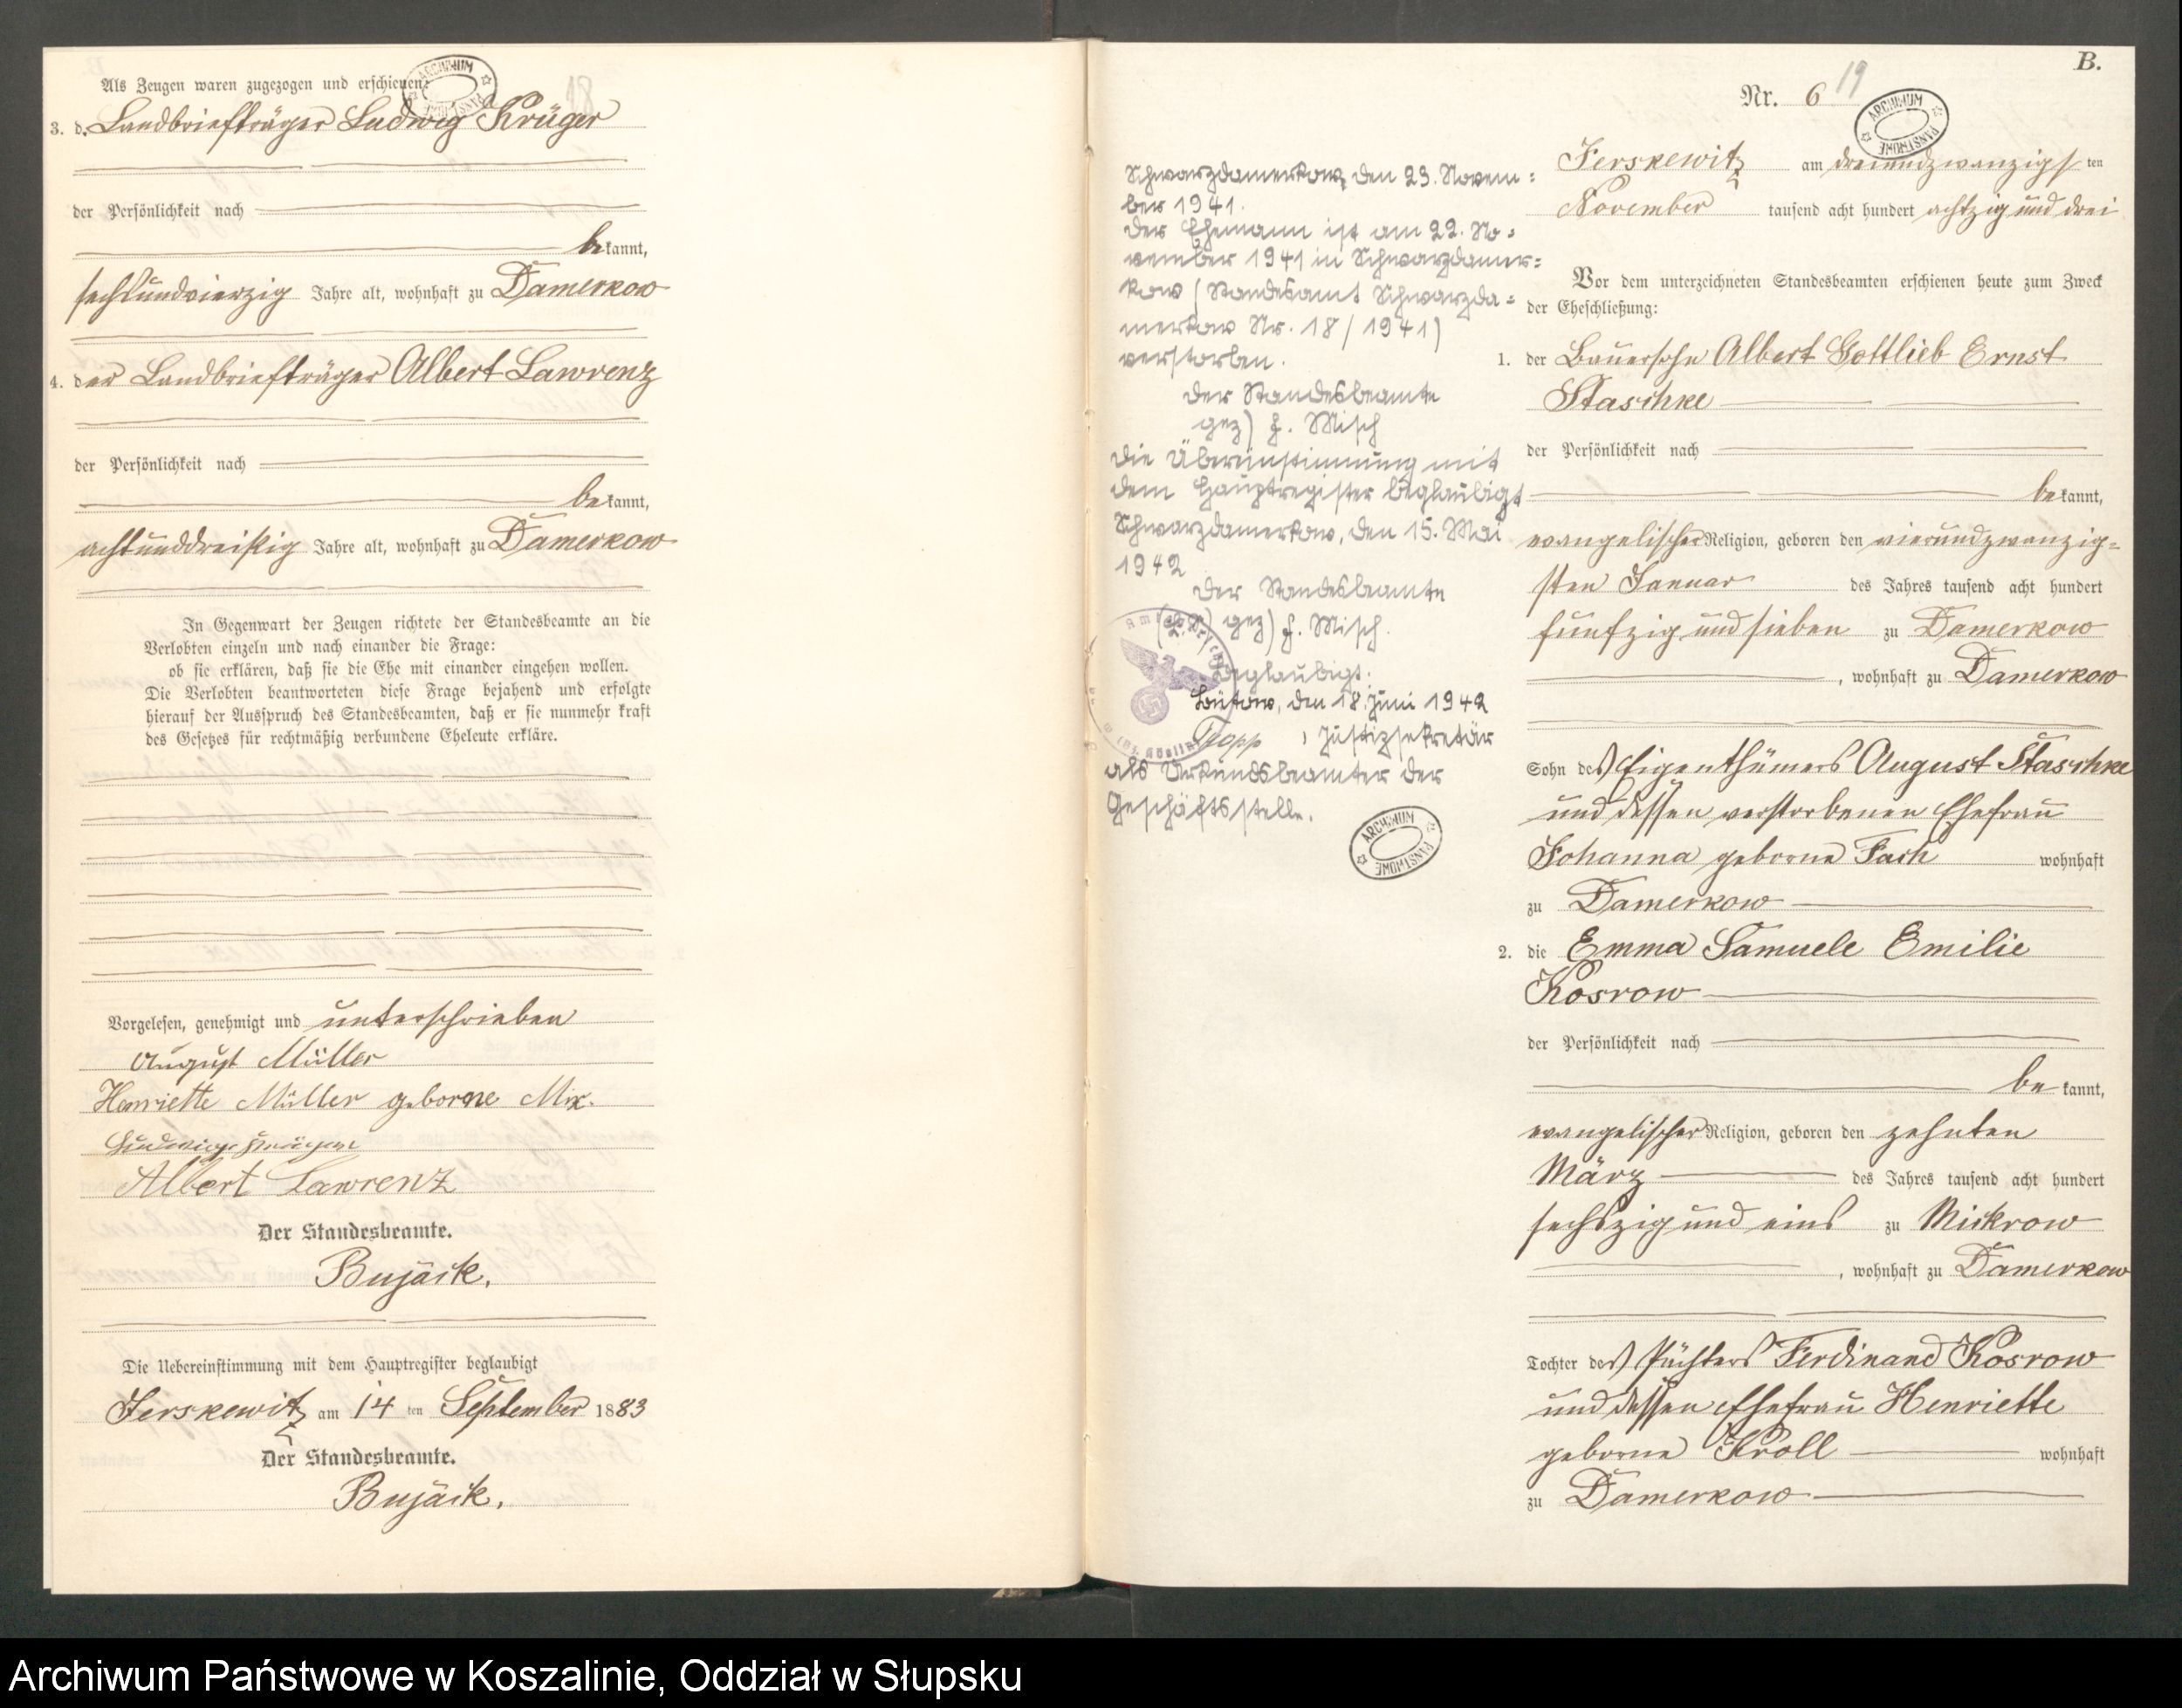 Als Zeugen waren zugezogen und erschienen:
18
3. d. Landbriefträger Ludwig Krüger
der Persönlichkeit nach
bekannt,
sechsundvierzig Jahre alt, wohnhaft zu Damerkow
4. der Landbriefträger Albert Lawrenz
der Persönlichkeit nach
bekannt,
achtunddreißig Jahre alt, wohnhaft zu Damerkow
In Gegenwart der Zeugen richtete der Standesbeamte an die
Verlobten einzeln und nach einander die Frage:
ob sie erklären, daß sie die Ehe mit einander eingehen wollen.
Die Verlobten beantworteten diese Frage bejahend und erfolgte
hierauf der Ausspruch des Standesbeamten, daß er sie nunmehr kraft
des Gesetzes für rechtmäßig verbundene Eheleute erkläre.
Vorgelesen, genehmigt und unterschrieben
August Müller
Henriette Müller geborne Mix.
Ludwig Krüger
Albert Lawrenz
Der Standesbeamte.
Bujäck.
Die Uebereinstimmung mit dem Hauptregister beglaubigt
Jerskewitz am 14 ten September 1883
Der Standesbeamte.
Bujäck.
ARCHIWUM PAŃSTWOWE
Schwarzdamerkow, den 23. Novem=
ber 1941.
Der Ehemann ist am 22. No=
vember 1941 in Schwarzdamer=
kow (Standesamt Schwarzda=
merkow Nr. 18/1941)
verstorben.
Der Standesbeamte
gez) F. Misch
Die Übereinstimmung mit
dem Hauptregister beglaubigt
Schwarzdamerkow, den 15. Mai
1942
Der Standesbeamte
(L.S.) gez) F. Misch.
Beglaubigt:
Bütow, den 18. Juni 1942
, Justizsekretär
als Urkundsbeamter der
Geschäftsstelle.
ARCHIWUM PAŃSTWOWE
B.
Nr. 6
19
ARCHIWUM PAŃSTWOWE
Jerskewitz am dreiundzwanzigsten
November tausend acht hundert achtzig und drei
Vor dem unterzeichneten Standesbeamten erschienen heute zum Zweck
der Eheschließung:
1. der Bauersohn Albert Gottlieb Ernst
Staschke
der Persönlichkeit nach
bekannt,
evangelischer Religion, geboren den vierundzwanzig=
sten Januar des Jahres tausend acht hundert
fünfzig und sieben zu Damerkow
, wohnhaft zu Damerkow
Sohn des Eigenthümers August Staschke
und dessen verstorbenen Ehefrau
Johanna geborne Fach wohnhaft
zu Damerkow
2. die Emma Samuele Emilie
Kosrow
der Persönlichkeit nach
bekannt,
evangelischer Religion, geboren den zehnten
März des Jahres tausend acht hundert
sechszig und eins zu Mickrow
, wohnhaft zu Damerkow
Tochter des Püchters Ferdinand Kosrow
und dessen Ehefrau Henriette
geborne Kroll wohnhaft
zu Damerkow
Archiwum Państwowe w Koszalinie, Oddział w Słupsku